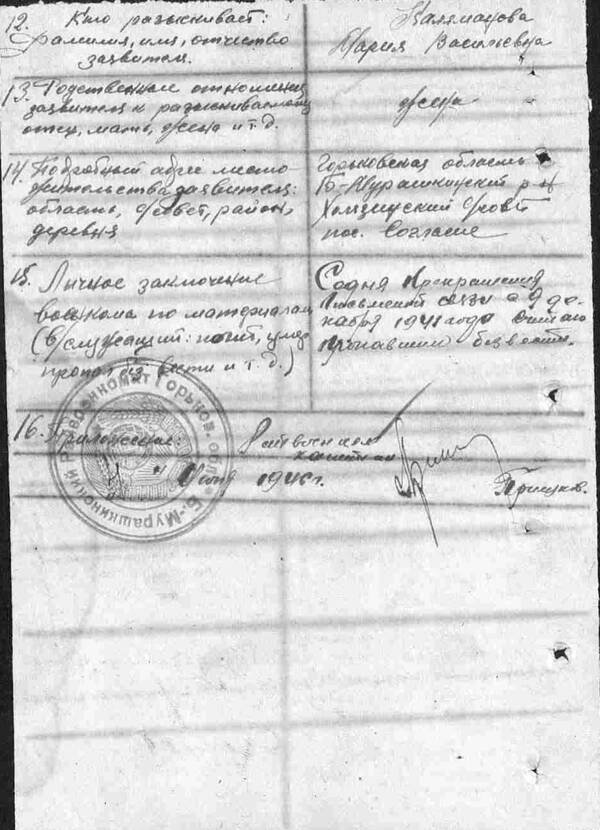 12. Кто разыскивает:
Фамилия, имя, отчество
заявителя.
Мария Васильевна
13. Родственное отношение
заявителя к разыскиваемому
отец, мать, жена и т.д.
жена
14. Подробный адрес место-
жительства заявителя:
область, с/совет, район,
деревня
Горьковская область
Б-Мурашкинский р-н
с/совет
пос. Согласие
15. Личное заключение
военкома по материалам
(в/служащий: погиб, умер
пропал без вести и т.д.)
Со дня прекращения
письменной связи с 9 де-
кабря 1941 года считаю
пропавшим без вести.
16. Приложение:
Райвоенком
капитан
1946 г.
Б.-Мурашкинский Райвоенкомат Горьков. обл.